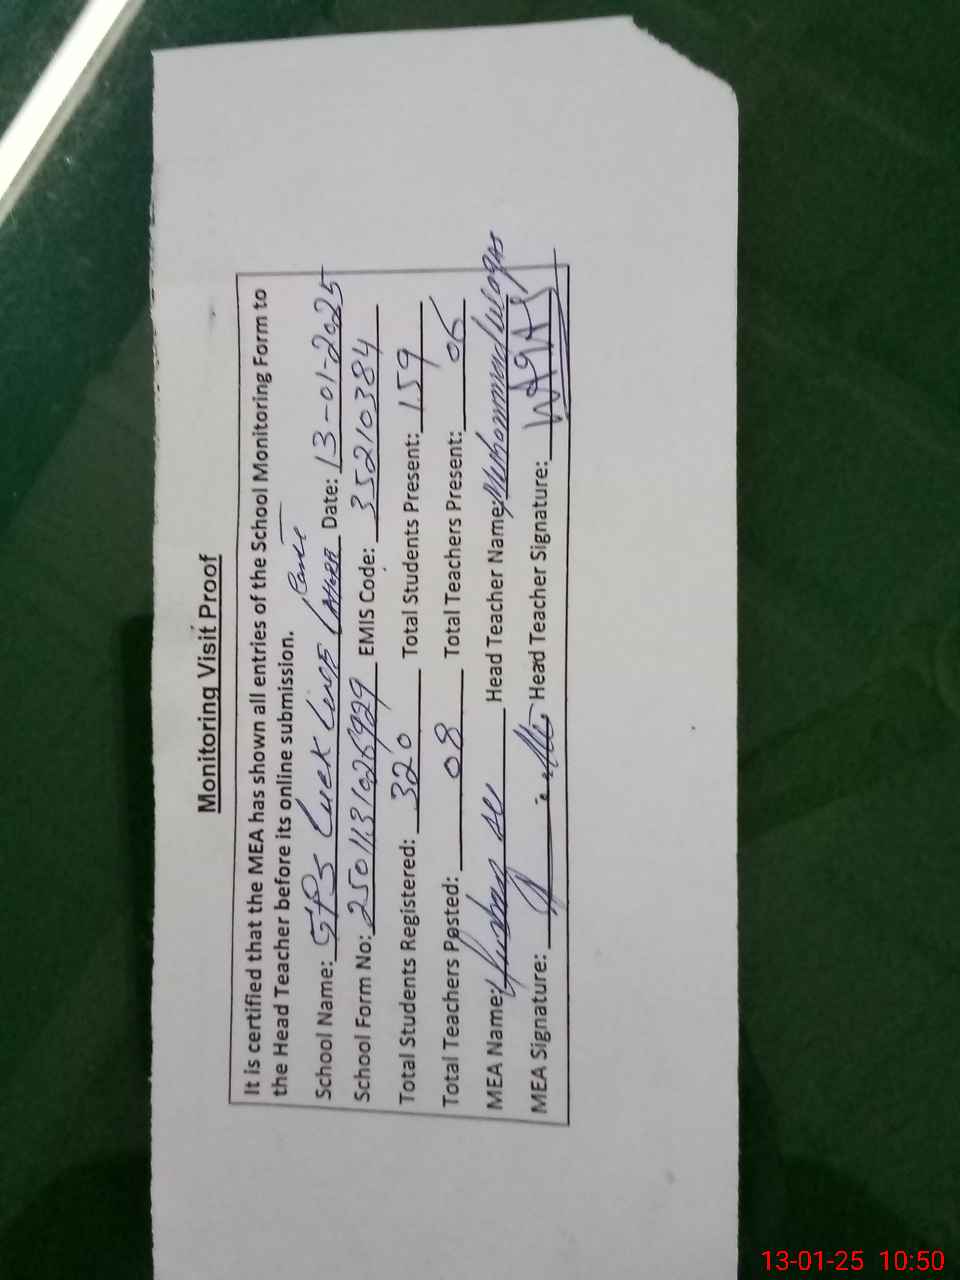 Monitoring Visit Proof
It is certified that the MEA has shown all entries of the School Monitoring Form to
the Head Teacher before its online submission.
School Name: GPS Date: 13-01-2025
School Form No: EMIS Code: 35210384
Total Students Registered: 320 Total Students Present: 159
Total Teachers Posted: 08 Total Teachers Present:
MEA Name: Head Teacher Name: Muhammad Waqas
MEA Signature: Head Teacher Signature: WAQAS
13-01-25 10:50